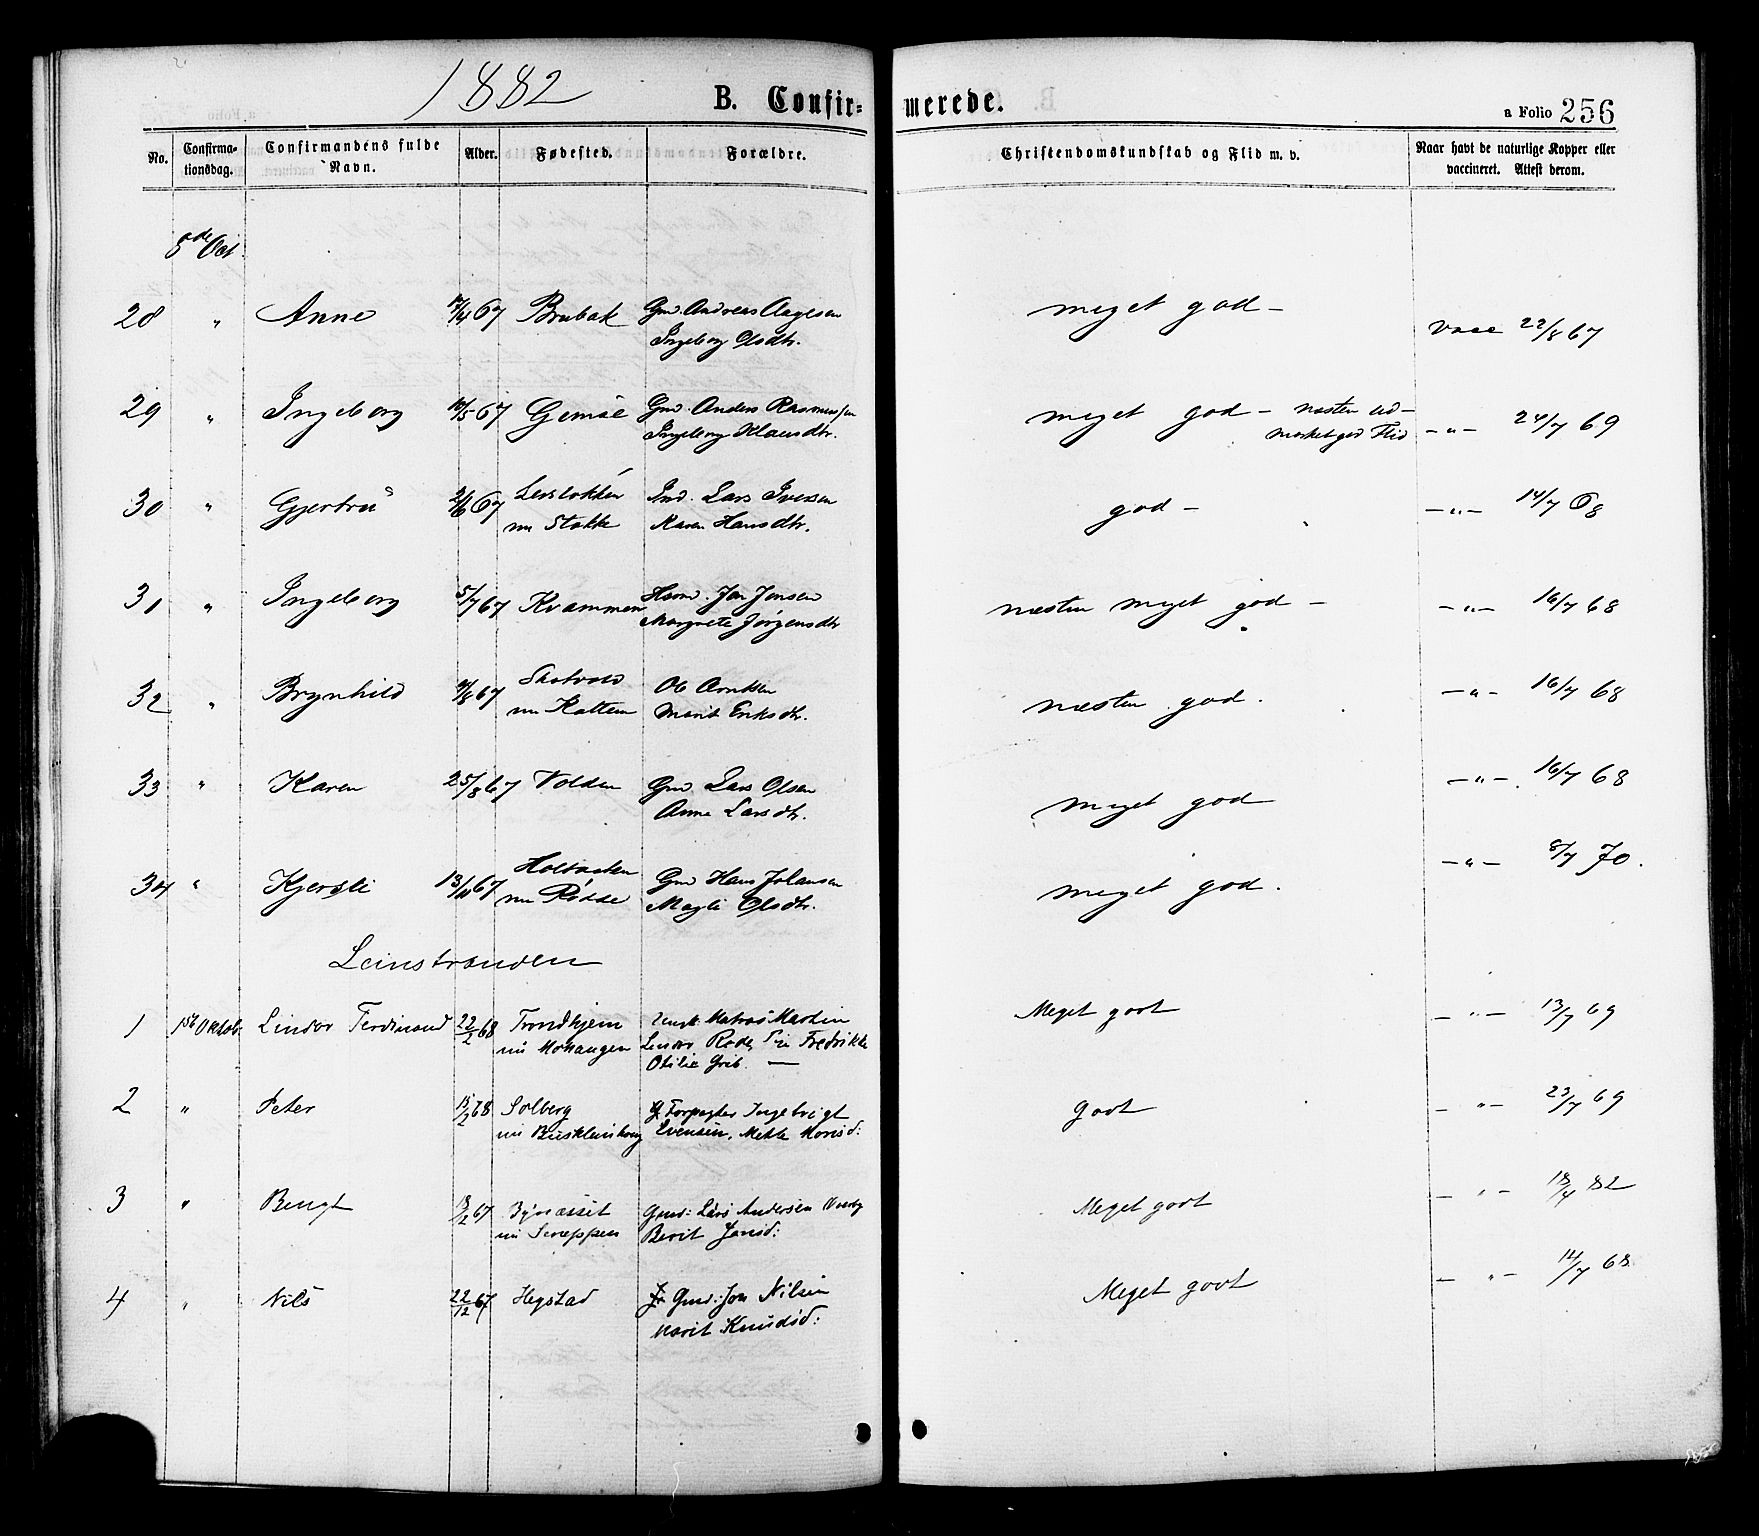 1882
B. Confir=
merede.
a Folio 256
No. Confirma= Confirmandens fulde Alder. Fødested. Forældre. Christendomskundskab og Flid m. v. Naar havt de naturlige Kopper eller
tionsdag. Navn. vaccineret. Attest derom.
8de Oct.
28 " Anne 17/4 67 Brubak Gmd. Andreas Aagesen meget god - vacc 22/8 67
Ingeborg Olsdtr.
29 " Ingeborg 10/5 67 Gemse Gmd. Anders Rasmussen meget god - næsten ud- -"- 24/7 69
Ingeborg Klausdtr. mærket god Flid
30 " Gjertru 2/6 67 Ind. Lars Iversen god - -"- 14/7 68
nu Stokke Karen Hansdtr.
31 " Ingeborg 5/7 67 Kvammen Huusmd. Jon Jonsen næsten meget god - -"- 16/7 68
Margrete Jørgensdtr
32 " Brynhild 7/8 67 Skatvold Ole Arntsen næsten god. -"- 16/7 68
nu Kattem Marit Eriksdtr.
33 " Karen 25/8 67 Volden Gmd. Lars Olsen meget god -"- 16/7 68
Anne Larsdtr.
34 " Kjersti 13/11 67 Holbakken Gmd Hans Johansen meget god. -"- 8/7 70.
nu Rødde Magli Olsdtr.
Leinstranden
1 1ste Oktob. Lindor Ferdinand 22/2 68 Trondhjem Ungk: Matros Martin Meget godt -"- 13/7 69
nu Mohaugen Lindor Rode, Pie Fredrikke
Otilie Grib. -
2 " Peter 15/2 68 Solberg Forpagter Ingebrigt Godt -"- 23/7 69
nu Buskleinhaug Evensen, Mette Monsd:
3 " Bengt 18/2 67 Bynæsset Gmd: Lars Andersen Meget godt -"- 18/4 82
nu Skreppen Berit Jonsd:
4 " Nils 22/12 67 Hegstad Gmd: Jon Nilsen Meget godt -"- 14/7 68
Marit Knudsd: